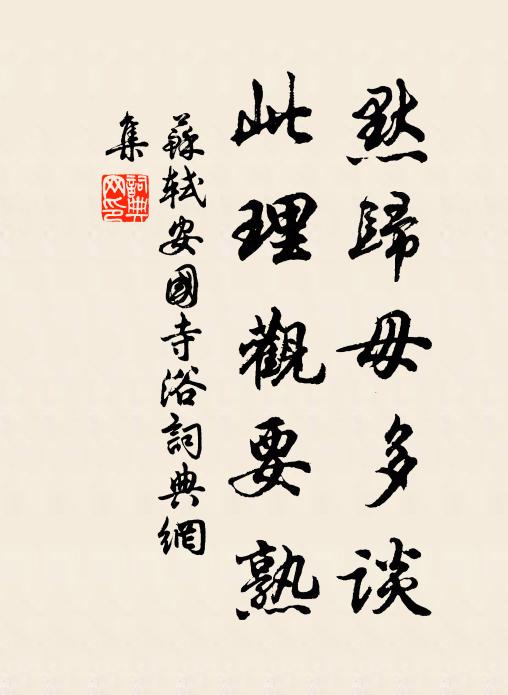 默歸毋多談
此理觀要熟
蘇軾安國寺浴詞典網
集
詞典網印